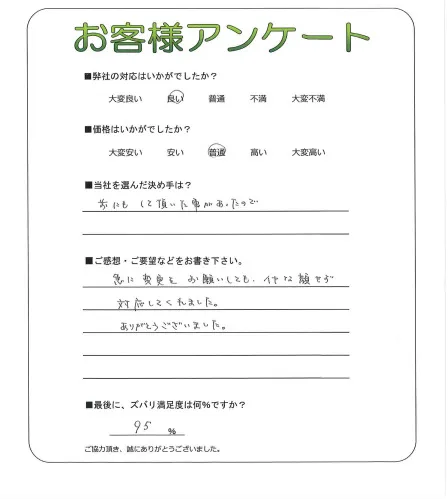 お客様アンケート
■弊社の対応はいかがでしたか?
大変良い 良い 普通 不満 大変不満
■価格はいかがでしたか?
大変安い 安い 普通 高い 大変高い
■当社を選んだ決め手は?
前にも して頂いた事があったので
■ご感想・ご要望などをお書き下さい。
急に 変更を お願いしても、イヤな顔せず
対応してくれました。
ありがとうございました。
■最後に、ズバリ満足度は何%ですか?
95 %
ご協力頂き、誠にありがとうございました。